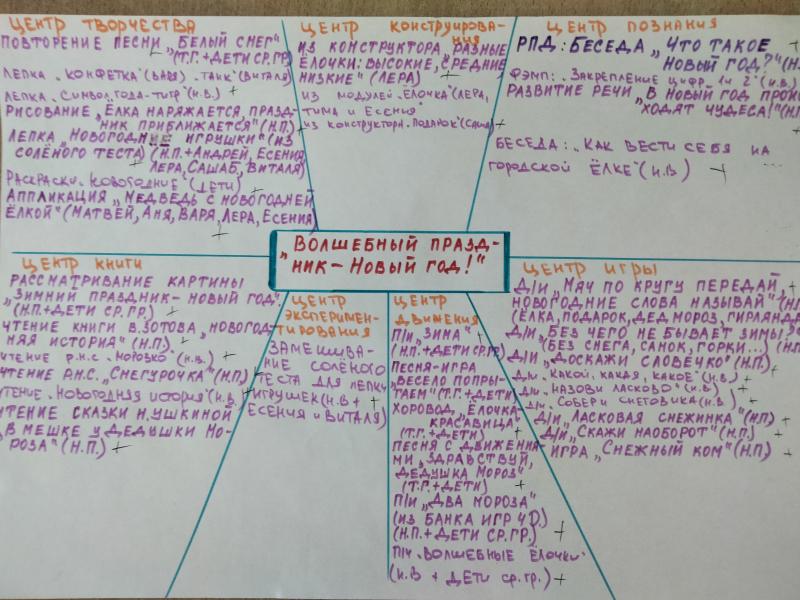 ЦЕНТР ТВОРЧЕСТВА
ПОВТОРЕНИЕ ПЕСНИ „БЕЛЫЙ СНЕГ"
(Т.Г.+ДЕТИ СР.ГР)
ЛЕПКА „КОНФЕТКА" (ВАРЯ) „ТАНК" (ВИТАЛЯ)
ЛЕПКА „СИМВОЛ ГОДА-ТИГР" (Н.В.) +
РИСОВАНИЕ „ЁЛКА НАРЯЖАЕТСЯ, ПРАЗД-
НИК ПРИБЛИЖАЕТСЯ" (Н.П.) +
ЛЕПКА „НОВОГОДНИЕ ИГРУШКИ" (ИЗ
СОЛЁНОГО ТЕСТА) (Н.П.+АНДРЕЙ, ЕСЕНИЯ,
ЛЕРА, САША Б, ВИТАЛЯ)
РАСКРАСКИ „НОВОГОДНИЕ" (ДЕТИ) +
АППЛИКАЦИЯ „МЕДВЕДЬ С НОВОГОДНЕЙ
ЁЛКОЙ" (МАТВЕЙ, АНЯ, ВАРЯ, ЛЕРА, ЕСЕНИЯ)
ЦЕНТР КОНСТРУИРОВА-
НИЯ
ИЗ КОНСТРУКТОРА „РАЗНЫЕ
ЁЛОЧКИ: ВЫСОКИЕ, СРЕДНИЕ
НИЗКИЕ" (ЛЕРА)
ИЗ МОДУЛЕЙ „ЁЛОЧКА" (ЛЕРА,
ТИМА И ЕСЕНИЯ)
ИЗ КОНСТРУКТОРА „ПОДАРОК" (САША)
ЦЕНТР ПОЗНАНИЯ
РПД: БЕСЕДА „ЧТО ТАКОЕ
НОВЫЙ ГОД?"
ФЭМП: „ЗАКРЕПЛЕНИЕ ЦИФР 1 И 2" (Н.В.)
РАЗВИТИЕ РЕЧИ „В НОВЫЙ ГОД ПРОИС
ХОДЯТ ЧУДЕСА!"
БЕСЕДА: „КАК ВЕСТИ СЕБЯ НА
ГОРОДСКОЙ ЁЛКЕ" (Н.В.) +
„ВОЛШЕБНЫЙ ПРАЗД-
НИК – НОВЫЙ ГОД!"
ЦЕНТР КНИГИ
РАССМАТРИВАНИЕ КАРТИНЫ
„ЗИМНИЙ ПРАЗДНИК – НОВЫЙ ГОД"
(Н.П.+ДЕТИ СР.ГР.)
ЧТЕНИЕ КНИГИ В.ЗОТОВА „НОВОГОД-
НЯЯ ИСТОРИЯ" (Н.П.) +
ЧТЕНИЕ Р.Н.С. „МОРОЗКО" (Н.В.) +
ЧТЕНИЕ Р.Н.С. „СНЕГУРОЧКА" (Н.П.) +
ЧТЕНИЕ „НОВОГОДНЯЯ ИСТОРИЯ" (Н.В.)
ЧТЕНИЕ СКАЗКИ Н.УШКИНОЙ
„В МЕШКЕ У ДЕДУШКИ МО-
РОЗА" (Н.П.) +
ЦЕНТР
ЭКСПЕРИМЕН-
ТИРОВАНИЯ
ЗАМЕШИВА-
НИЕ СОЛЁНОГО
ТЕСТА ДЛЯ ЛЕПКИ
ИГРУШЕК (Н.В +
ЕСЕНИЯ И ВИТАЛЯ)
ЦЕНТР
ДВИЖЕНИЯ
П/И „ЗИМА" +
(Н.П.+ДЕТИ СР.ГР)
ПЕСНЯ-ИГРА
„ВЕСЕЛО ПОПРЫ-
ГАЕМ" (Т.Г.+ДЕТИ)
ХОРОВОД „ЁЛОЧКА-
КРАСАВИЦА"
(Т.Г.+ДЕТИ) +
ПЕСНЯ С ДВИЖЕНИЯ-
МИ „ЗДРАВСТВУЙ,
ДЕДУШКА МОРОЗ"
(Т.Г.+ДЕТИ) +
П/И „ДВА МОРОЗА"
(ИЗ БАНКА ИГР ЧД.)
(Н.П.+ДЕТИ СР.ГР.) +
П/И „ВОЛШЕБНЫЕ ЁЛОЧКИ"
(Н.В + ДЕТИ СР.ГР.) +
ЦЕНТР ИГРЫ
Д/И „МЯЧ ПО КРУГУ ПЕРЕДАЙ,
НОВОГОДНИЕ СЛОВА НАЗЫВАЙ" (Н.П.)
(ЁЛКА, ПОДАРОК, ДЕД МОРОЗ, ГИРЛЯНДА
Д/И „БЕЗ ЧЕГО НЕ БЫВАЕТ ЗИМЫ?"
(БЕЗ СНЕГА, САНОК, ГОРКИ...) (Н.П.)
Д/И „ДОСКАЖИ СЛОВЕЧКО" (Н.П.)
Д/И „КАКОЙ, КАКАЯ, КАКОЕ" (Н.В.) +
Д/И „НАЗОВИ ЛАСКОВО" (Н.В.) +
Д/И „СОБЕРИ СНЕГОВИКА" (Н.В) +
Д/И „ЛАСКОВАЯ СНЕЖИНКА" (Н.П)
Д/И „СКАЖИ НАОБОРОТ" (Н.П.) +
ИГРА „СНЕЖНЫЙ КОМ" (Н.П.) +